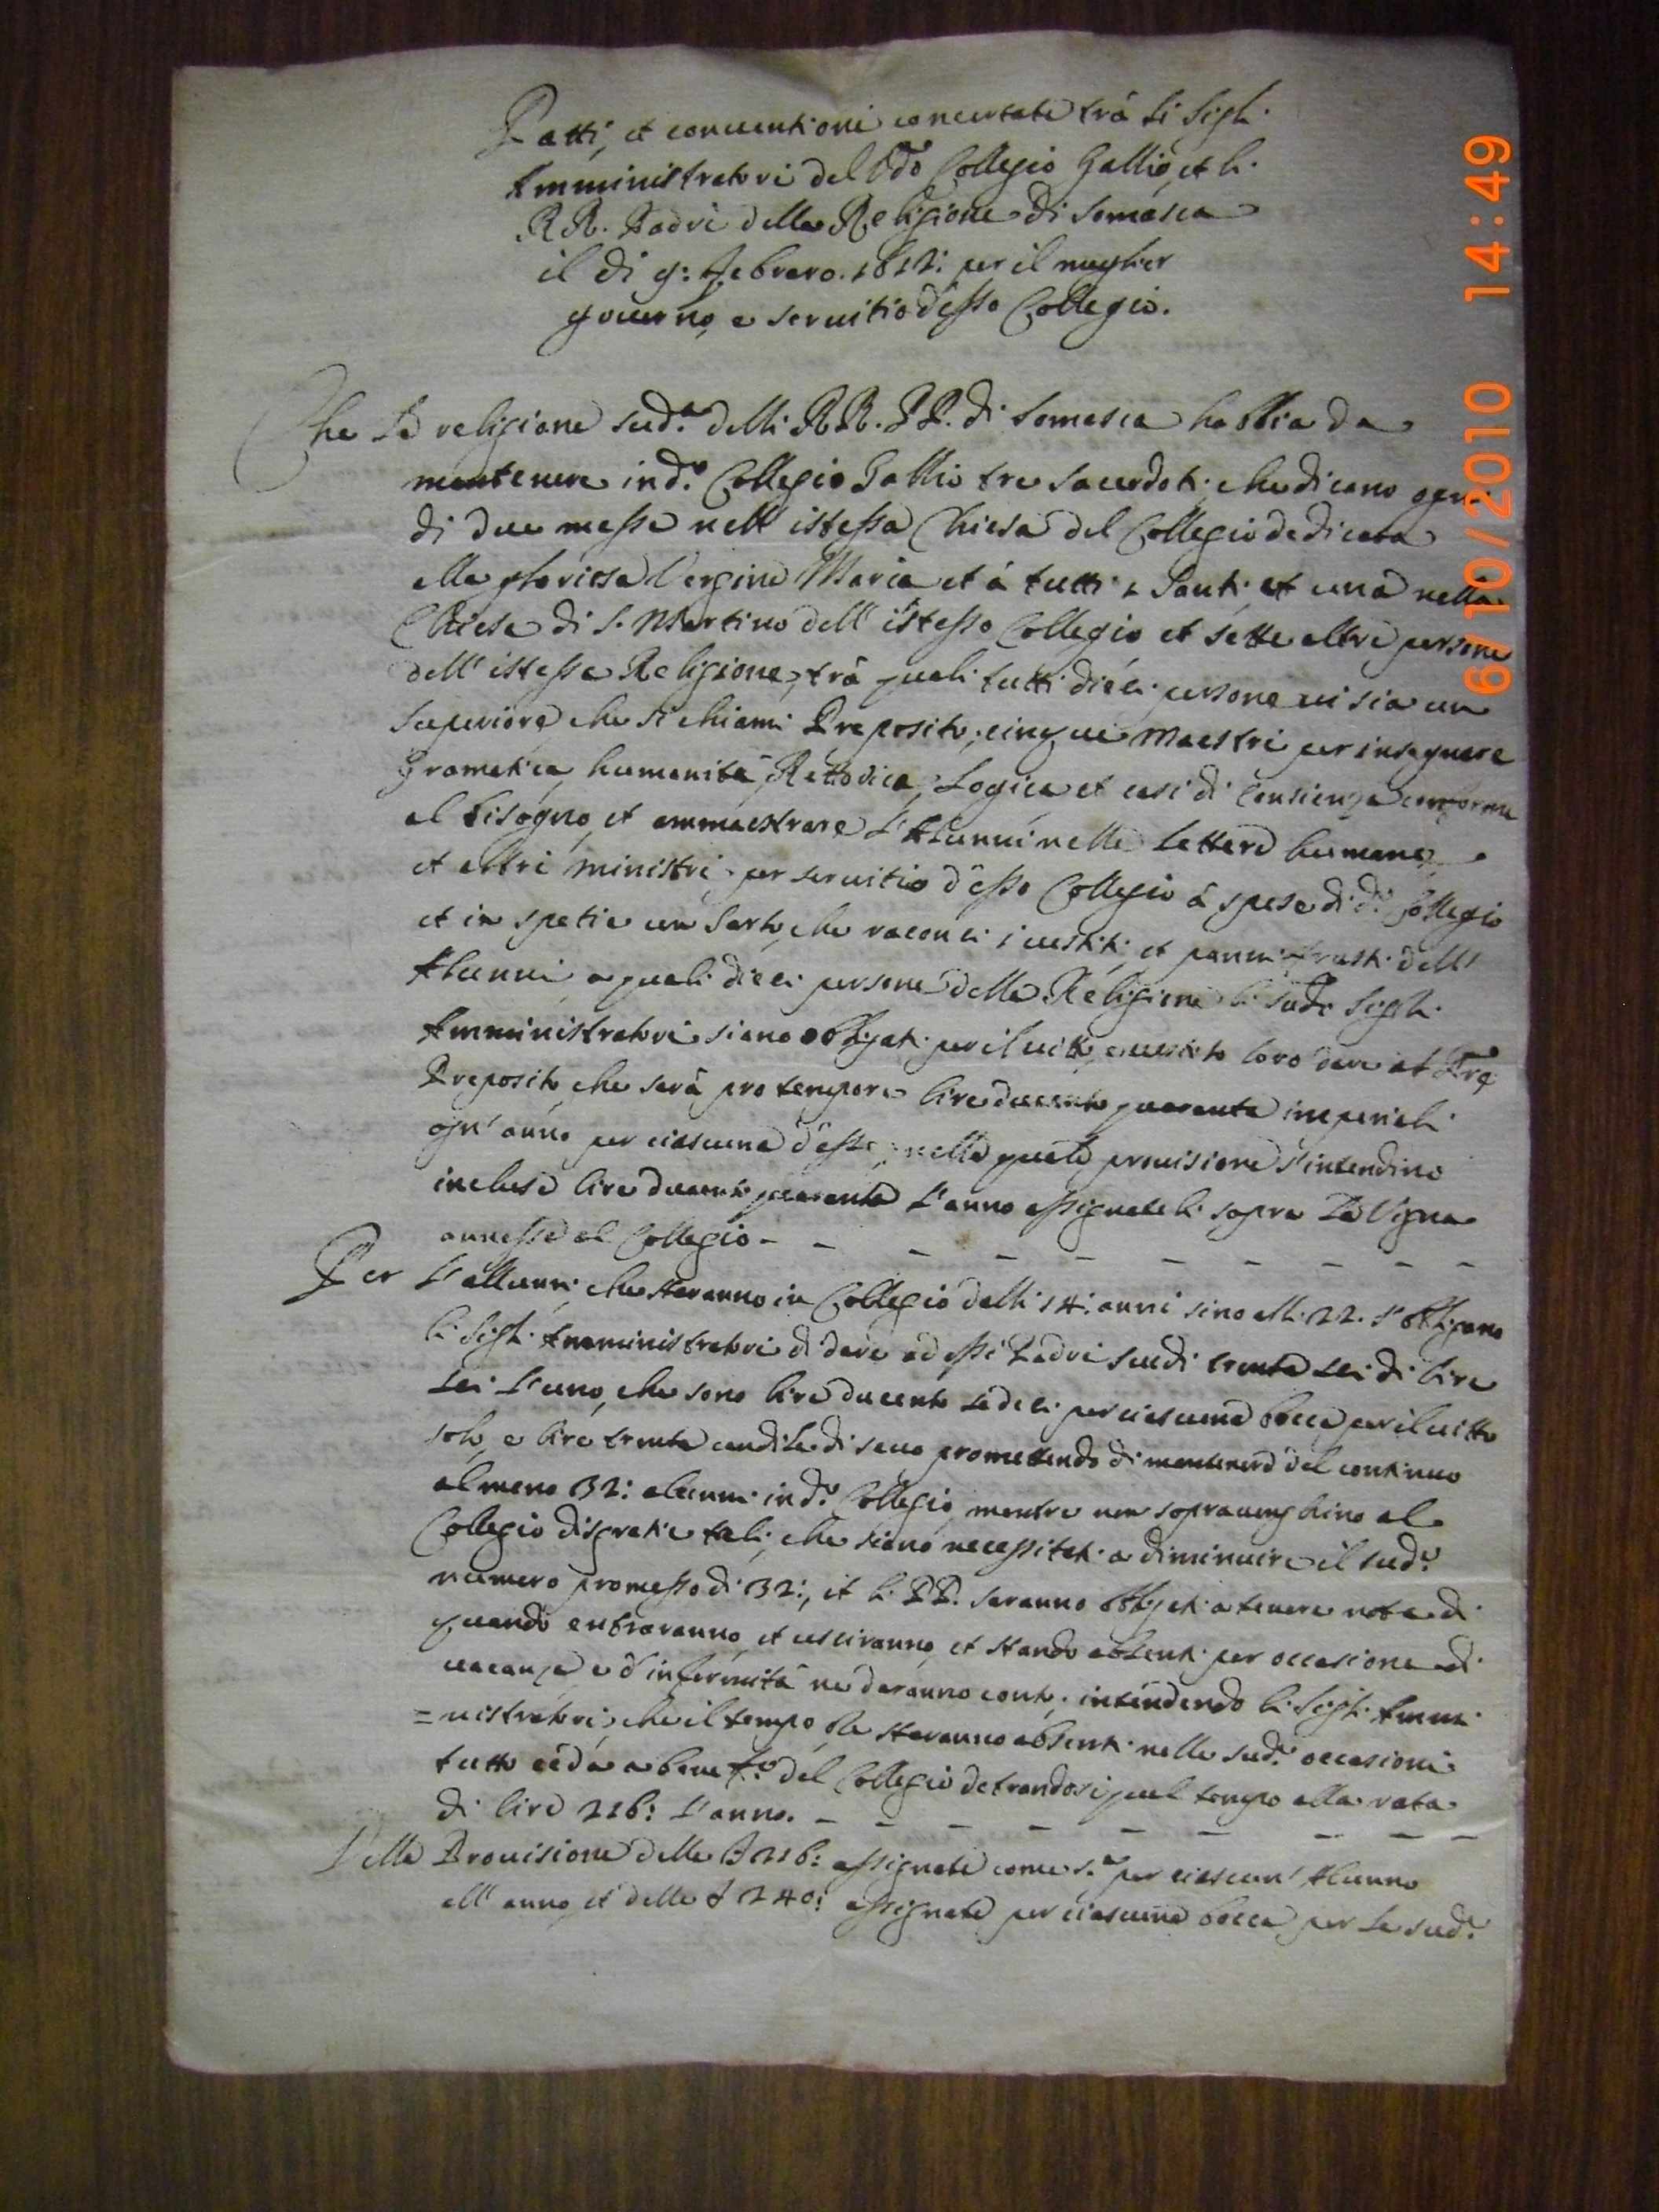 Patti, et conuentioni concertate trà li Sigri.
Amministratori del Vdo Collegio Gallio, et li
RR. Padri della Religione di Somasca
il di 9: Febraro. 1612: per il meglior
gouerno, e seruitio d'esso Collegio.
Che la religione sud.a delli RR. PP. di Somasca habbia da
mantenere in d.o Collegio Gallio tre sacerdoti, che dicano ogni
di due messe nell' istessa Chiesa del Collegio dedicata
alla gloriosa Vergine Maria, et à tutti i Santi, et una nella
Chiesa di S. Martino dell' istesso Collegio et sette altre persone
dell' istessa Religione, trà quali tutti dieci persone ui sia un
superiore che si chiami Preposito, cinque Maestri per insegnare
Gramatica, humanità, Rettorica, Logica et casi di Consienza conforme
al bisogno, et ammaestrare l'Alunni nelle lettere humane,
et altri ministri per seruitio d'esso Collegio à spese di d.o Collegio
et in spetie un Sarto, che raconci i uestiti, et panni frusti delli
Alunni a quali dieci persone della Religione li sudi Sigri.
Amministratori siano obligati per il uitto, e uestito loro dare al Pre
Preposito che sarà pro tempore lire ducento quaranta imperiali
ogn' anno per ciascuna d'esse, nella quale prouisione s'intendino
incluse lire ducento quaranta l'anno assignateli sopra la Vigna
annessa al Collegio - - - - - - - - -
Per l'allunni che staranno in Collegio dalli 14: anni sino alli 22. s'obligano
li Sigri. Amministratori di dare ad essi Padri scudi trenta sei di lire
sei l'uno, che sono lire ducento sedeci per ciascuna bocca per il uitto
solo, e lire trenta candile di seuo promettendo di mantenere del continuo
almeno 32: alunni in d.o Collegio, mentre non soprauenghino al
Collegio disgratie tali, che siano necessitati a diminuire il sud.o
numero promesso di 32:, et li PP. saranno obligati a tenere nota di
quando entraranno, et usciranno, et stando absenti per occasione di
uacanza e d'infermità ne daranno conto, intendendo li Sigri. Ammi
=nistratori, che il tempo che staranno absenti nelle sud.e occasioni
tutto ceda a benef.o del Collegio detrandosi quel tempo alla rata
di lire 216: l'anno. - - - - - - - -
Della Prouisione delle £ 216: assignate come s.a per ciascun' Alunno
all' anno, et delle £ 240: assignate per ciascuna bocca per le sud.e
6/10/2010 14:49